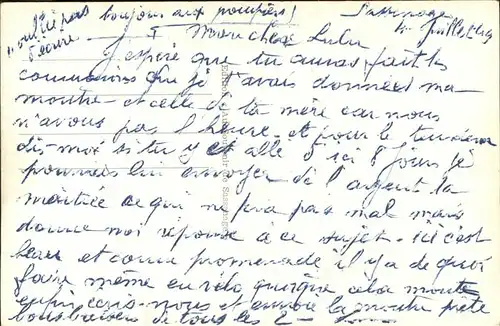 n'oublie pas
d'écrire
bonjour aux pompiers!
Sassenage
le juillet
Mon cher Lulu
J'espère que tu auras fait les
commissions que je t'avais données ma
montre et celle de ta mère car nous
n'avons pas l'heure et pour le
dis-moi si tu y est allé d'ici 8 jours je
pourrais lui envoyer de l'argent la
moitiée ce qui ne fra pas mal mais
donne moi réponse à ce sujet - ici c'est
beau et comme promenade il y a de quoi
faire même en vélo quoique cela monte
enfin écris-nous et envoie la montre
bons baisers de tous les 2